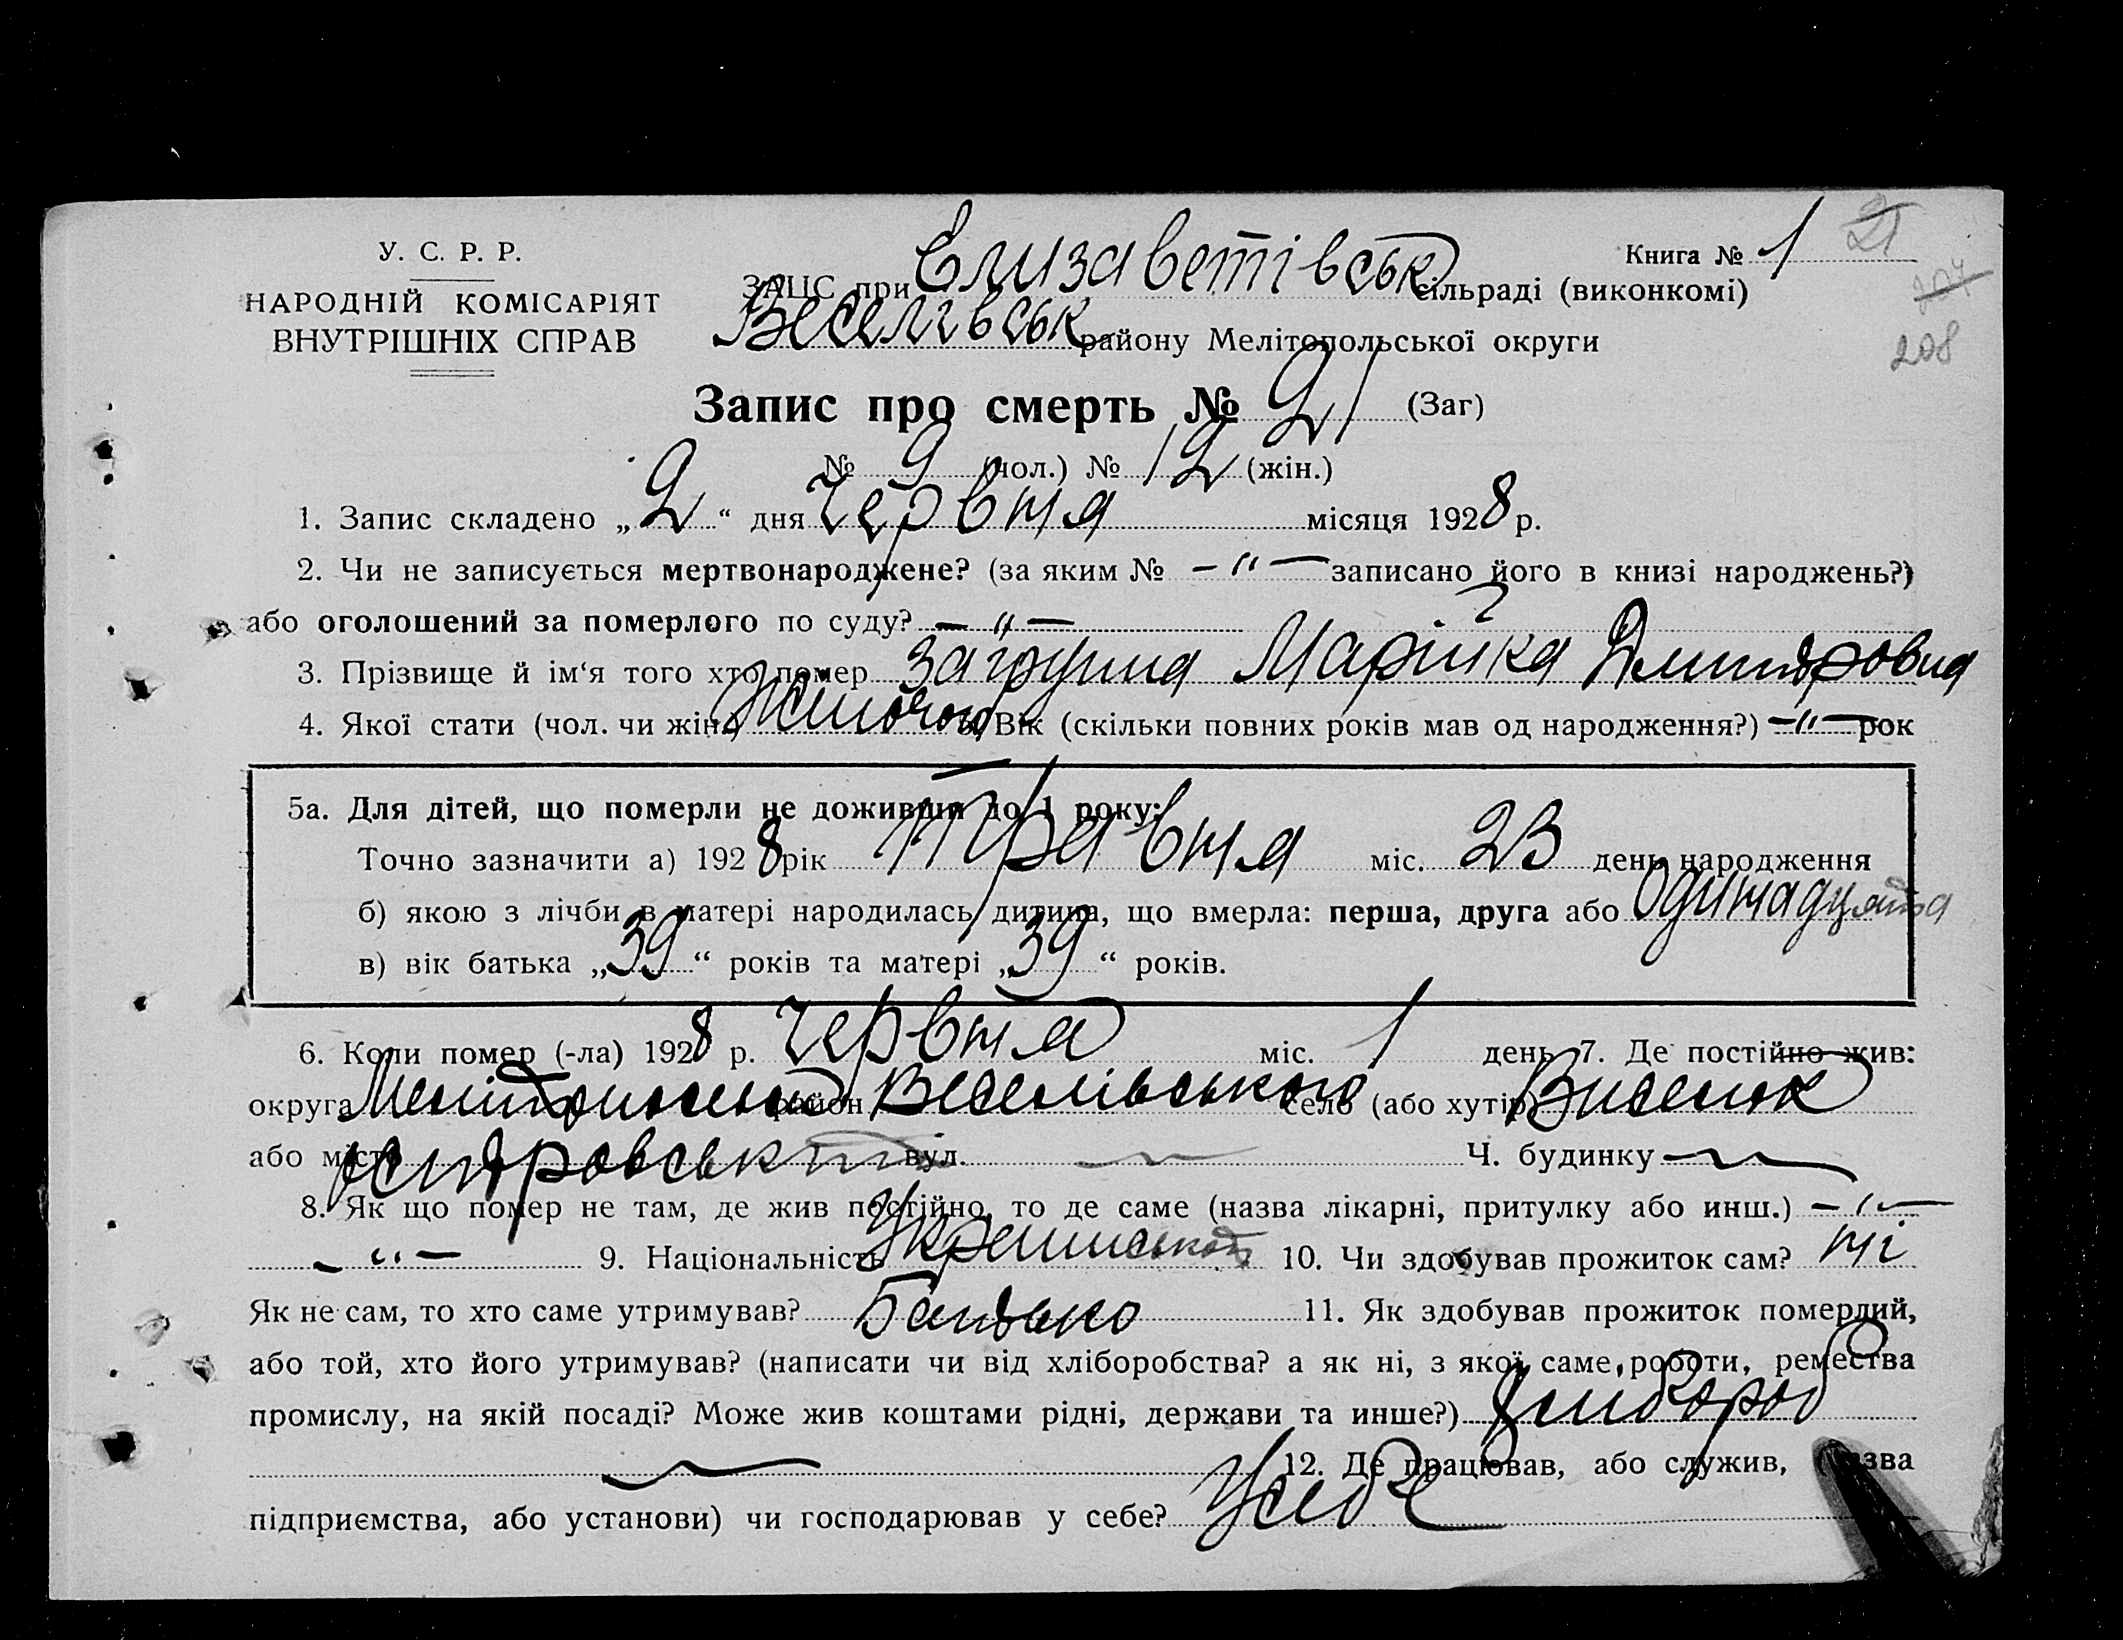 У. С. Р. Р.
НАРОДНІЙ КОМІСАРІЯТ
ВНУТРІШНІХ СПРАВ
Книга № 1 21
ЗАЦС при Єлизаветівськ сільраді (виконкомі)
207
Веселівськ району Мелітопольської округи
208
Запис про смерть № 21 (Заг)
№ 9 (чол.) № 12 (жін.)
1. Запис складено „2“ дня червня місяця 1928 р.
2. Чи не записується мертвонароджене? (за яким № —"— записано його в книзі народжень?)
або оголошений за померлого по суду? —"—
3. Прізвище й ім‘я того хто помер Марійка Дмитровна
4. Якої стати (чол. чи жін.) жіночої Вік (скільки повних років мав од народження?) —"— рок
5а. Для дітей, що померли не доживши до 1 року:
Точно зазначити а) 1928 рік травня міс. 23 день народження
б) якою з лічби в матері народилась дитина, що вмерла: перша, друга або одинадцята
в) вік батька „39“ років та матері „39“ років.
6. Коли помер (-ла) 1928 р. червня міс. 1 день 7. Де постійно жив:
округа район Веселівського село (або хутір) Виселок
або місто вул. — Ч. будинку —
8. Як що помер не там, де жив постійно, то де саме (назва лікарні, притулку або инш.) —"—
—"— 9. Національність 10. Чи здобував прожиток сам? ні
Як не сам, то хто саме утримував? Батько 11. Як здобував прожиток померлий,
або той, хто його утримував? (написати чи від хліборобства? а як ні, з якої саме, роботи, ремества
промислу, на якій посаді? Може жив коштами рідні, держави та инше?) Хлібороб
— 12. Де працював, або служив, (назва
підприємства, або установи) чи господарював у себе? У себе